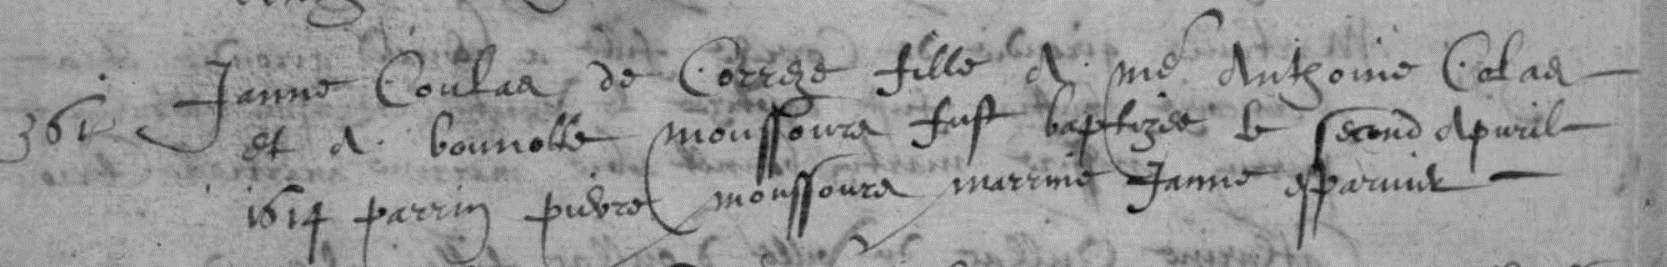 361 Janne Coulas de Correze fille d. me Anthoine Colas
et d. bonnolle moussours fust baptizee le second apuril
1614 parrin pierre moussoura marrine Janne esparvier